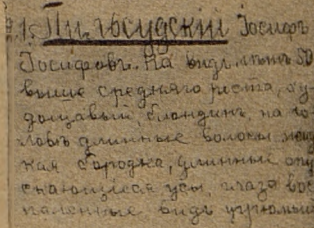 1. Пилсудский Іосифъ
Іосифовъ. На видъ лѣтъ 50
выше средняго роста, ху-
дощавый, блондинъ, на го-
ловѣ длинные волосы
кая бородка, длинные опу
скающіеся усы, глаза вос
паленные видъ угрюмый